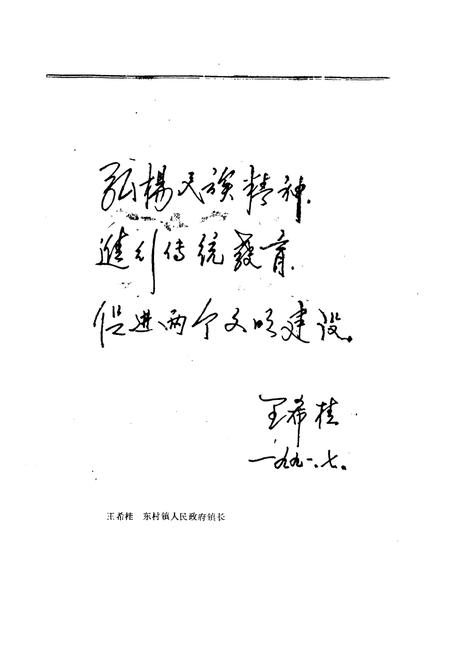 弘楊民族精神.
進行传统教育.
促进两个文明建设。
王希桂
一九九一.七.
王希桂 东村镇人民政府镇长